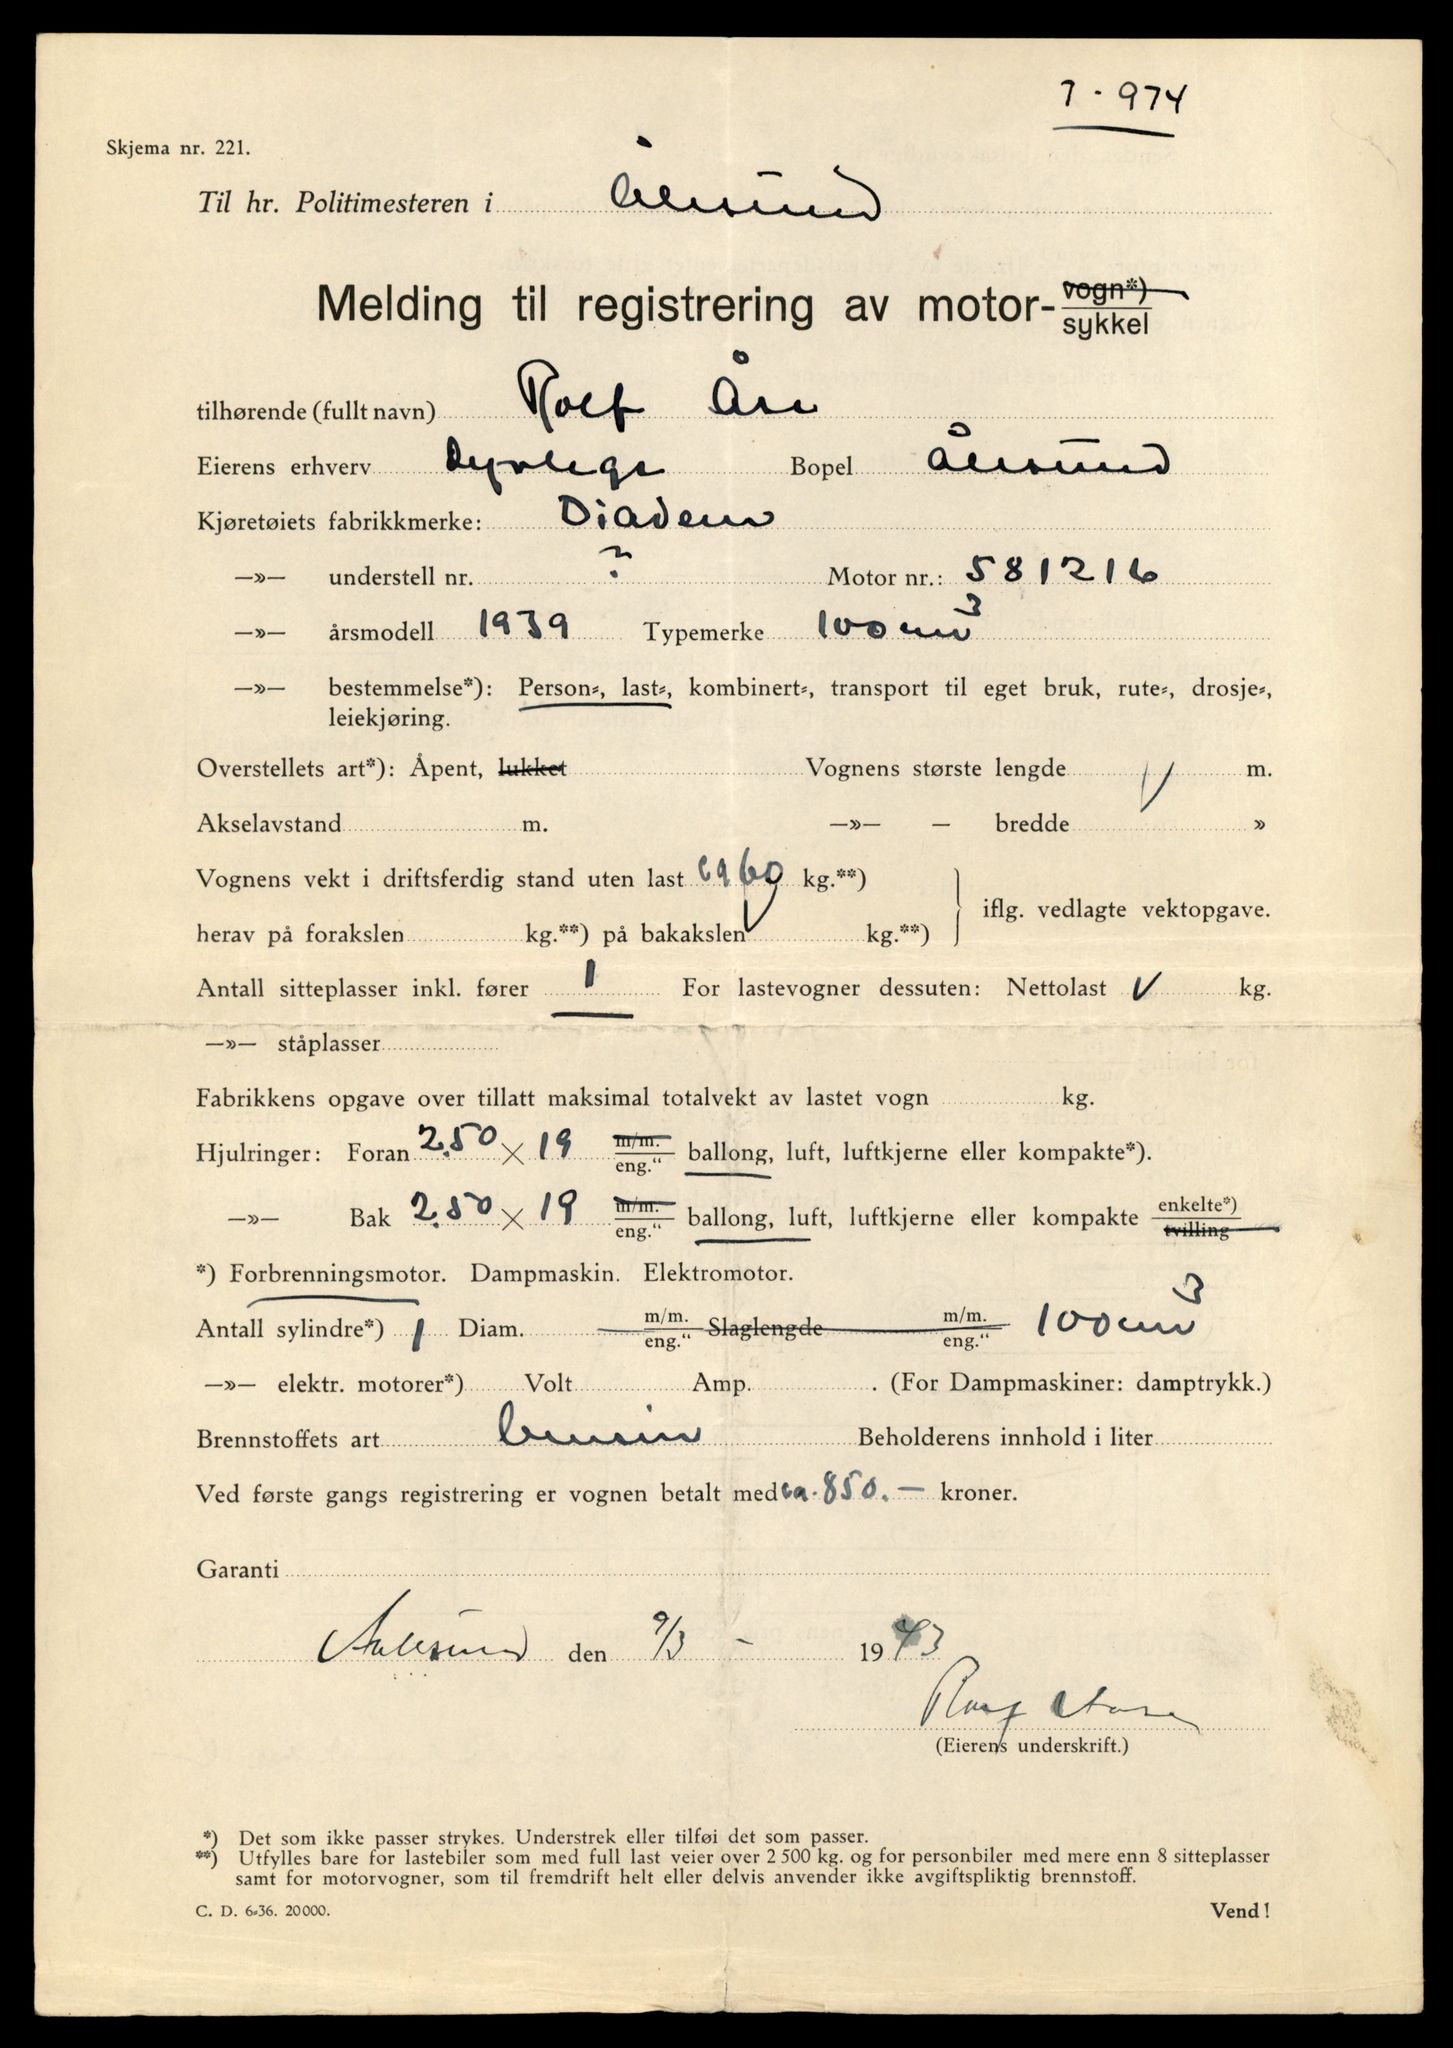 7 - 974
Skjema nr. 221.
Til hr. Politimesteren i Ålesund
Melding til registrering av motor- vogn*) sykkel
tilhørende (fullt navn) Rolf Åse
Eierens erhverv Dyrlege Bopel Ålesund
Kjøretøiets fabrikkmerke: Diadem
—»— understell nr. ? Motor nr.: 581216
—»— årsmodell 1939 Typemerke 100 cm³
—»— bestemmelse*): Person-, last-, kombinert-, transport til eget bruk, rute-, drosje-,
leiekjøring.
Overstellets art*): Åpent, lukket Vognens største lengde m.
Akselavstand m. —»— — bredde »
Vognens vekt i driftsferdig stand uten last ca 60 kg.**)
herav på forakslen kg.**) på bakakslen kg.**) iflg. vedlagte vektopgave.
Antall sitteplasser inkl. fører 1 For lastevogner dessuten: Nettolast kg.
—»— ståplasser
Fabrikkens opgave over tillatt maksimal totalvekt av lastet vogn kg.
Hjulringer: Foran 2.50 × 19 m/m. eng." ballong, luft, luftkjerne eller kompakte*).
—»— Bak 2.50 × 19 m/m. eng." ballong, luft, luftkjerne eller kompakte enkelte*) tvilling
*) Forbrenningsmotor. Dampmaskin. Elektromotor.
Antall sylindre*) 1 Diam. m/m. eng." Slaglengde m/m. eng." 100 cm³
—»— elektr. motorer*) Volt Amp. . (For Dampmaskiner: damptrykk.)
Brennstoffets art bensin Beholderens innhold i liter
Ved første gangs registrering er vognen betalt med ca. 850.— kroner.
Garanti
Aalesund den 9/3 - 1943
Rolf Aase
(Eierens underskrift.)
*) Det som ikke passer strykes. Understrek eller tilføi det som passer.
**) Utfylles bare for lastebiler som med full last veier over 2 500 kg. og for personbiler med mere enn 8 sitteplasser
samt for motorvogner, som til fremdrift helt eller delvis anvender ikke avgiftspliktig brennstoff.
C. D. 6-36. 20000. Vend!